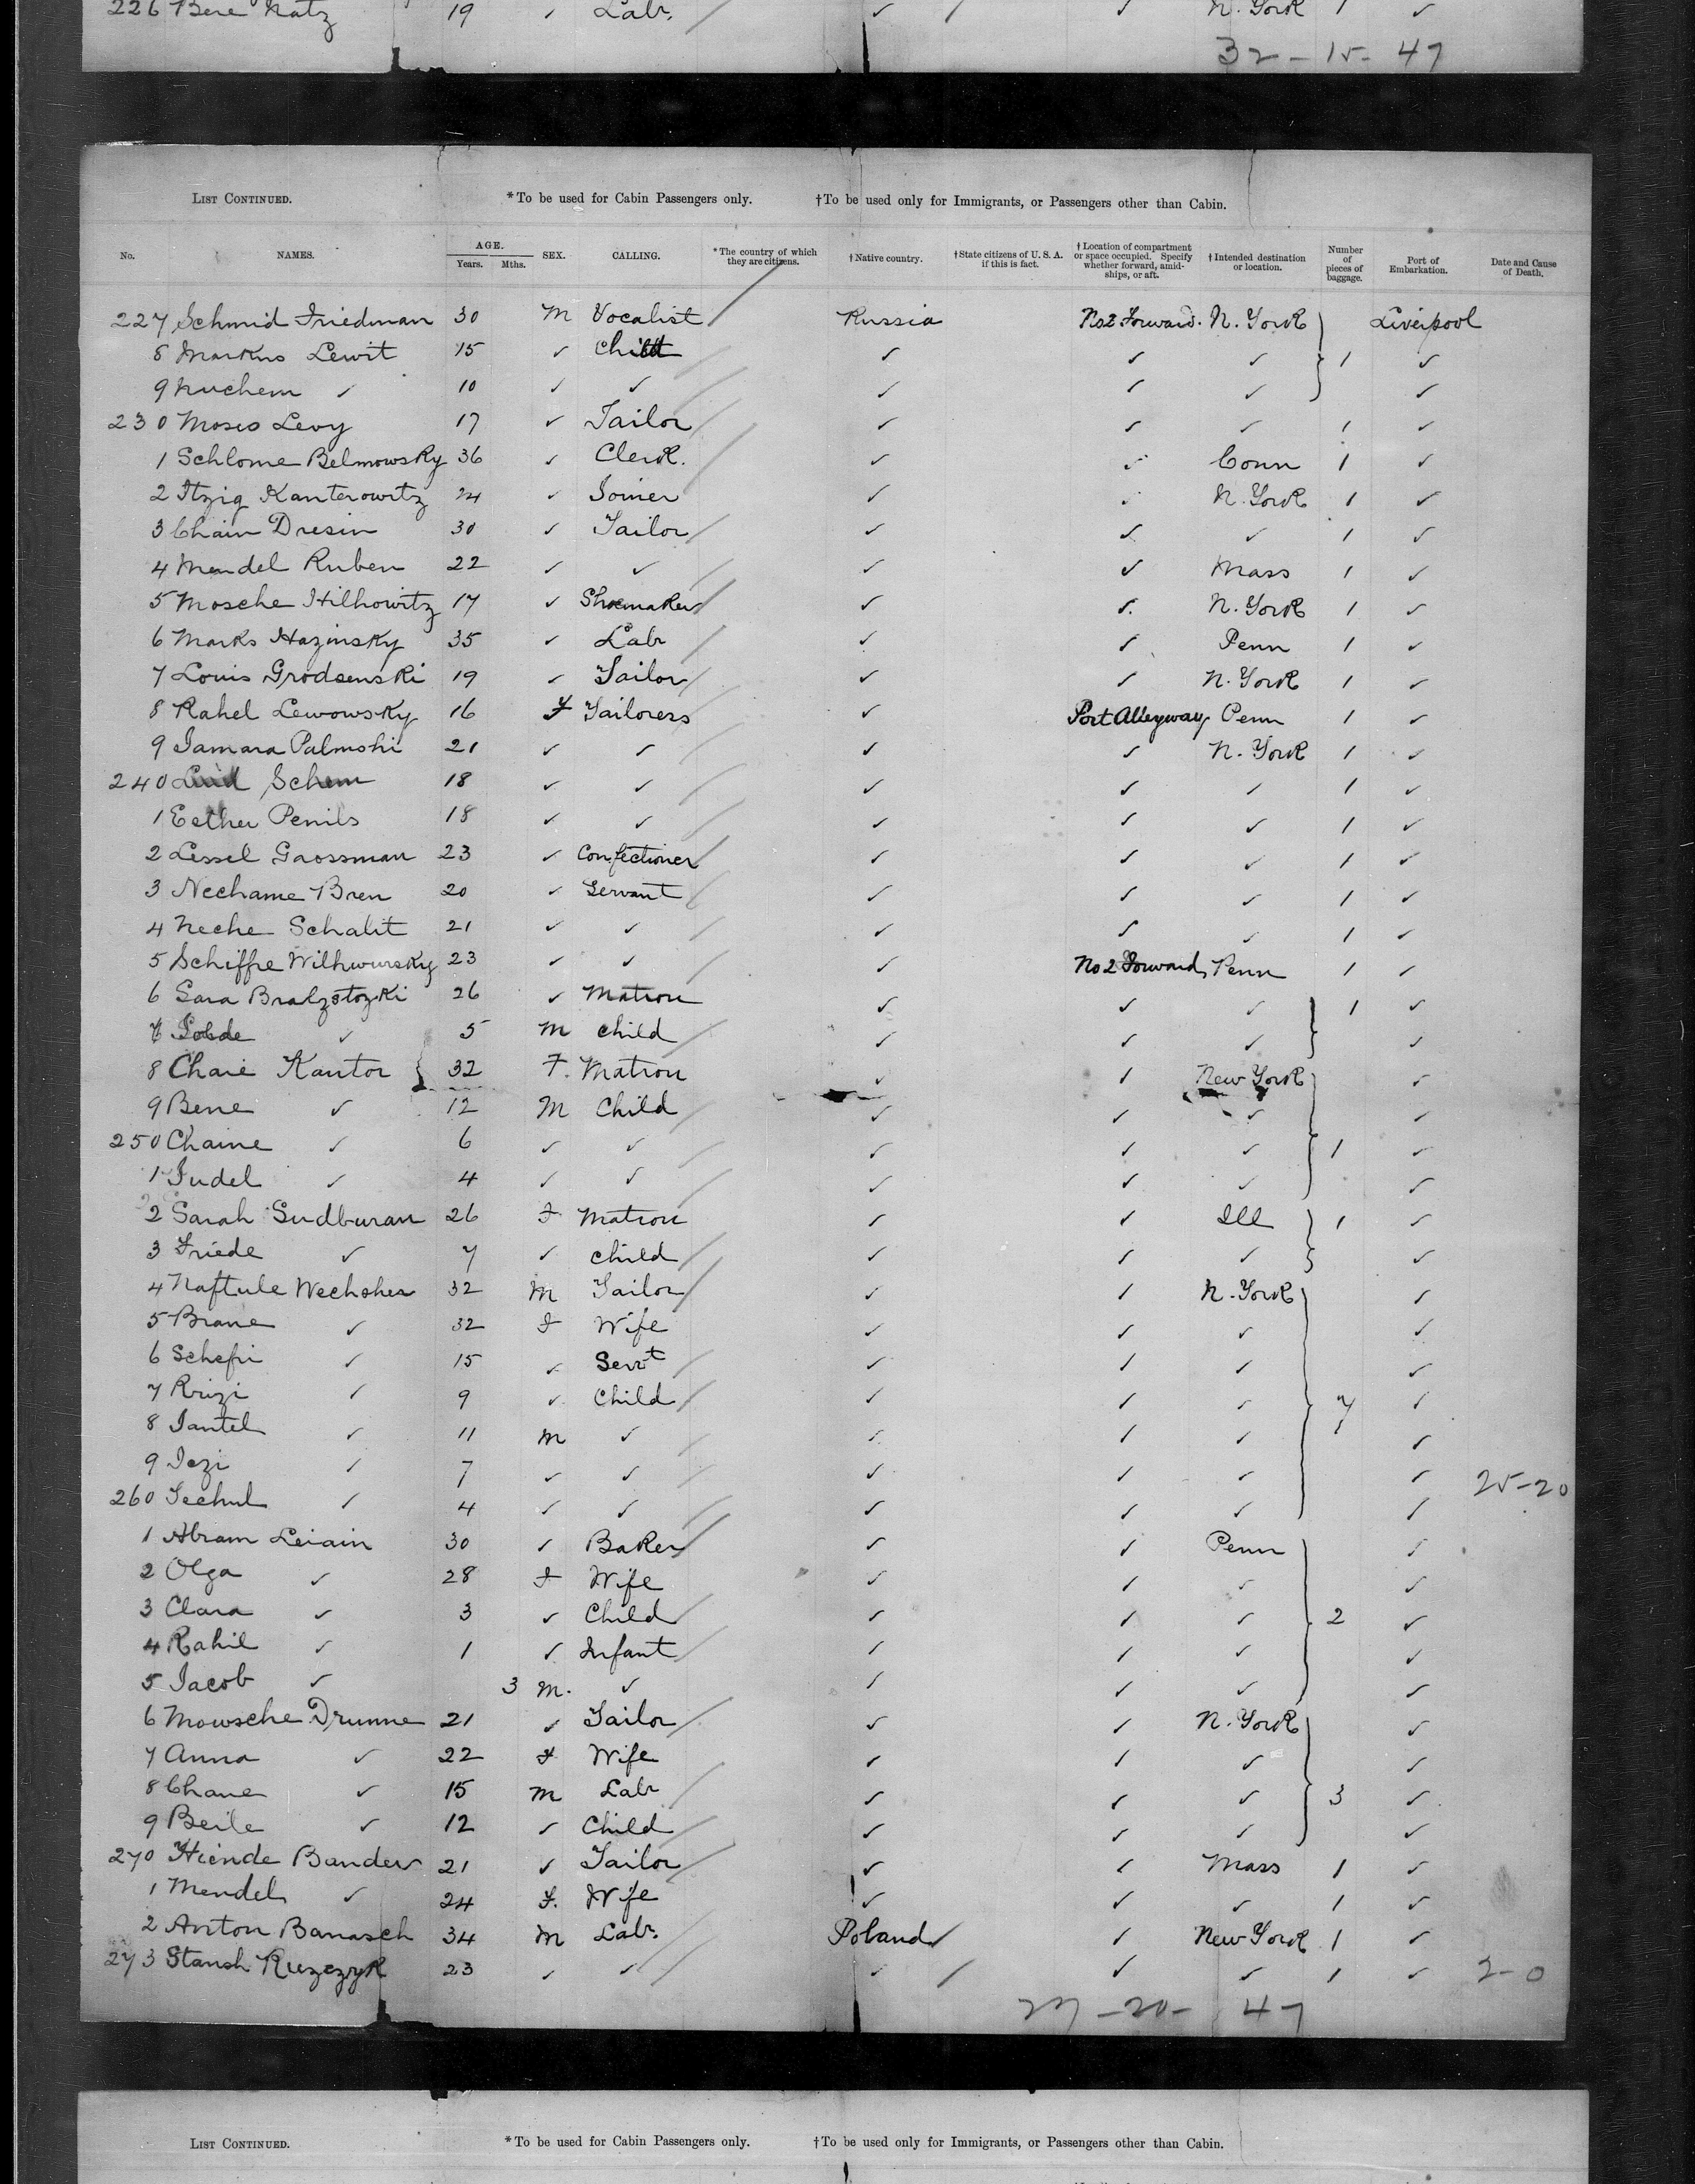 226 Bere Natz 19 ✓ Labr. ✓ ✓ N. York 1 ✓
32 - 15 - 47
LIST CONTINUED. *To be used for Cabin Passengers only. †To be used only for Immigrants, or Passengers other than Cabin.
No. NAMES. AGE. Years. Mths. SEX. CALLING. *The country of which they are citizens. †Native country. †State citizens of U. S. A. if this is fact. †Location of compartment or space occupied. Specify whether forward, amidships, or aft. †Intended destination or location. Number of pieces of baggage. Port of Embarkation. Date and Cause of Death.
227 Schmid Friedman 30 M Vocalist Russia No2 Forward. N. York Liverpool
8 Markus Lewit 15 ✓ Child ✓ ✓ ✓ 1 ✓
9 Nuchem ✓ 10 ✓ ✓ ✓ ✓ ✓ ✓
230 Moses Levy 17 ✓ Tailor ✓ ✓ ✓ 1 ✓
1 Schlome Belmowsky 36 ✓ Clerk. ✓ ✓ Conn 1 ✓
2 Itzig Kanterowitz 24 ✓ Joiner ✓ ✓ N. York 1 ✓
3 Chain Dresin 30 ✓ Tailor ✓ ✓ ✓ 1 ✓
4 Mendel Ruben 22 ✓ ✓ ✓ ✓ Mass 1 ✓
5 Mosche Hilhowitz 17 ✓ Shoemaker ✓ ✓ N. York 1 ✓
6 Marks Hazinsky 35 ✓ Labr ✓ ✓ Penn 1 ✓
7 Louis Grodsenski 19 ✓ Tailor ✓ ✓ N. York 1 ✓
8 Rahel Lewowsky 16 F Tailoress ✓ Port Alleyway Penn 1 ✓
9 Tamara Palmski 21 ✓ ✓ ✓ ✓ N. York 1 ✓
240 Schem 18 ✓ ✓ ✓ ✓ ✓ 1 ✓
1 Esther Penils 18 ✓ ✓ ✓ ✓ ✓ 1 ✓
2 Lessel Grossman 23 ✓ Confectioner ✓ ✓ ✓ 1 ✓
3 Nechame Bren 20 ✓ Servant ✓ ✓ ✓ 1 ✓
4 Neche Schalit 21 ✓ ✓ ✓ ✓ ✓ 1 ✓
5 Schiffre Wilhwursky 23 ✓ ✓ ✓ No2 Forward, Penn 1 ✓
6 Sara Bralzstozki 26 ✓ Matron ✓ ✓ ✓ 1 ✓
7 ✓ 5 M Child ✓ ✓ ✓ ✓
8 Chaie Kantor 32 F. Matron ✓ ✓ New York ✓
9 Bene ✓ 12 M Child ✓ ✓ ✓ ✓
250 Chaine ✓ 6 ✓ ✓ ✓ ✓ ✓ 1 ✓
1 Judel ✓ 4 ✓ ✓ ✓ ✓ ✓ ✓
2 Sarah Sudburan 26 F Matron ✓ ✓ Ill 1 ✓
3 Friede ✓ 7 ✓ Child ✓ ✓ ✓ ✓
4 Naftule Wechsher 32 M Tailor ✓ ✓ N. York ✓
5 Brane ✓ 32 F Wife ✓ ✓ ✓ ✓
6 Schefri ✓ 15 ✓ Servt ✓ ✓ ✓ ✓
7 Krizi ✓ 9 ✓ Child ✓ ✓ ✓ 7 ✓
8 Jantel ✓ 11 M ✓ ✓ ✓ ✓ ✓
9 Jezi ✓ 7 ✓ ✓ ✓ ✓ ✓ ✓ 25-20
260 Sechul ✓ 4 ✓ ✓ ✓ ✓ ✓ ✓
1 Abram Leiain 30 ✓ Baker ✓ ✓ Penn ✓
2 Olga ✓ 28 F Wife ✓ ✓ ✓ ✓
3 Clara ✓ 3 ✓ Child ✓ ✓ ✓ 2 ✓
4 Rahil ✓ 1 ✓ Infant ✓ ✓ ✓ ✓
5 Jacob ✓ 3 M. ✓ ✓ ✓ ✓ ✓
6 Mowsche Drunne 21 ✓ Tailor ✓ ✓ N. York ✓
7 Anna ✓ 22 F Wife ✓ ✓ ✓ ✓
8 Chane ✓ 15 M Labr ✓ ✓ ✓ 3 ✓
9 Beile ✓ 12 ✓ Child ✓ ✓ ✓ ✓
270 Hiende Bander 21 ✓ Tailor ✓ ✓ Mass 1 ✓
1 Mendel ✓ 24 F. Wife ✓ ✓ ✓ 1 ✓
2 Anton Banasch 34 M Labr. Poland ✓ New York 1 ✓
273 Stansh Kuzczyk 23 ✓ ✓ ✓ ✓ ✓ 1 ✓ 2-0
27 - 20 - 47
LIST CONTINUED. *To be used for Cabin Passengers only. †To be used only for Immigrants, or Passengers other than Cabin.